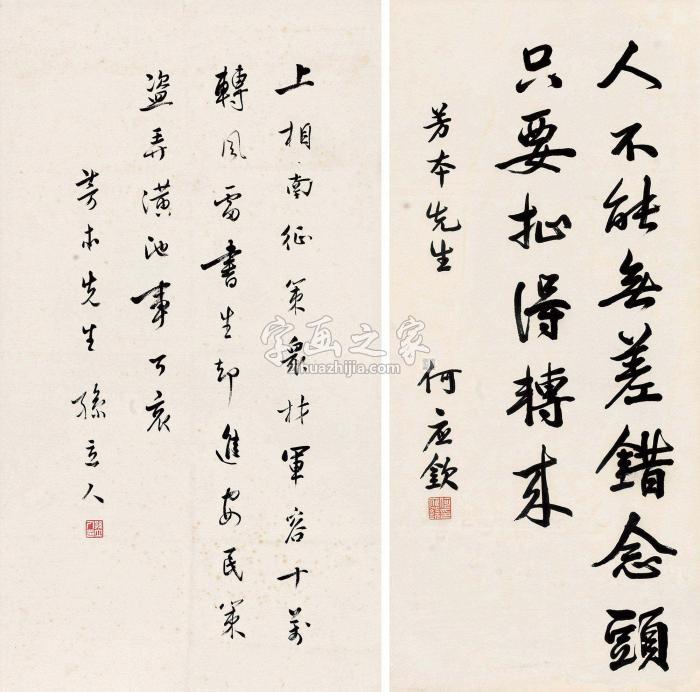 人不能無差錯念頭
只要扯得轉来
芳本先生
何應欽
上相南征策眾材軍容十萬
轉風雷書生却進安民策
盜弄潢池事可哀
芳本先生 孫立人
字画之家
zihuazhijia.com